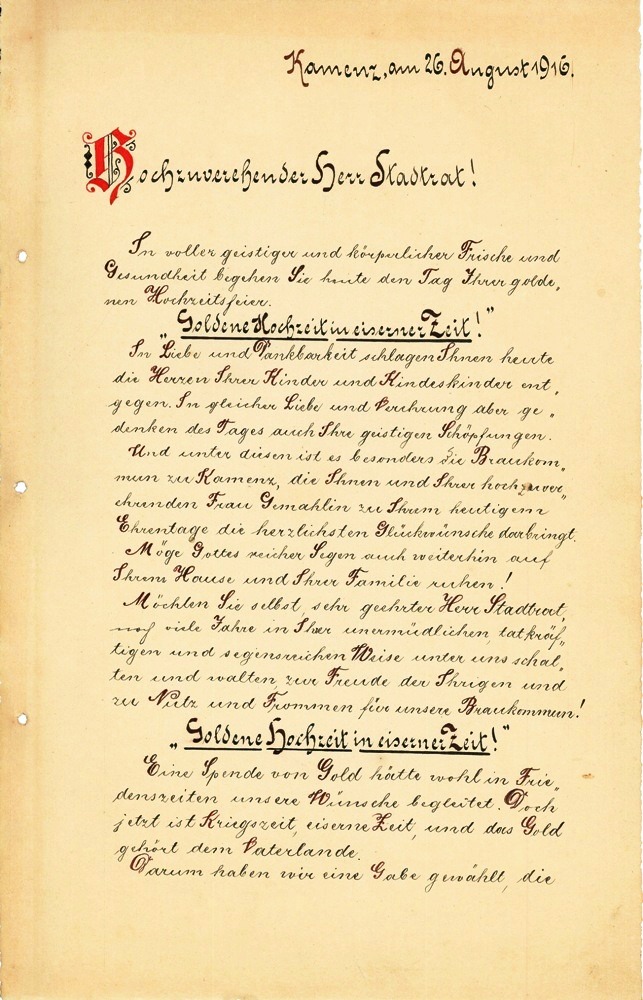 Kamenz, am 26. August 1916.
Hochzuverehender Herr Stadtrat!
In voller geistiger und körperlicher Frische und
Gesundheit begehen Sie heute den Tag Ihrer golde„
nen Hochzeitsfeier.
„Goldene Hochzeit in eiserner Zeit!"
In Liebe und Dankbarkeit schlagen Ihnen heute
die Herzen Ihrer Kinder und Kindeskinder ent„
gegen. In gleicher Liebe und Verehrung aber ge„
denken des Tages auch Ihre geistigen Schöpfungen.
Und unter diesen ist es besonders die Braukom„
mun zu Kamenz, die Ihnen und Ihrer hochzuver„
ehrenden Frau Gemahlin zu Ihrem heutigem
Ehrentage die herzlichsten Glückwünsche darbringt.
Möge Gottes reicher Segen auch weiterhin auf
Ihrem Hause und Ihrer Familie ruhen!
Möchten Sie selbst, sehr geehrter Herr Stadtrat,
noch viele Jahre in Ihrer unermüdlichen, tatkräf„
tigen und segensreichen Weise unter uns schal„
ten und walten zur Freude der Ihrigen und
zu Nutz und Frommen für unsere Braukommun!
„Goldene Hochzeit in eiserner Zeit!"
Eine Spende von Gold hätte wohl in Frie„
denszeiten unsere Wünsche begleitet. Doch
jetzt ist Kriegszeit, eiserne Zeit, und das Gold
gehört dem Vaterlande.
Darum haben wir eine Gabe gewählt, die